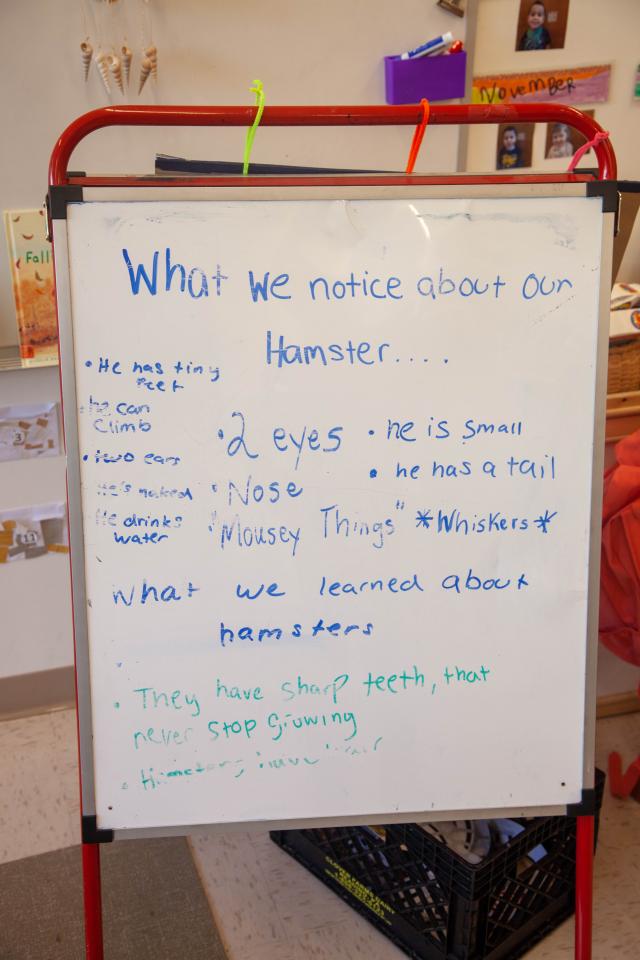 Fall
November
What we notice about our
Hamster....
• He has tiny
feet
he can
Climb
• two ears
He's naked
He drinks
water
• 2 eyes
• Nose
"Mousey Things"
• he is small
• he has a tail
*Whiskers*
What we learned about
hamsters
• They have sharp teeth, that
never stop growing
• have
3
11